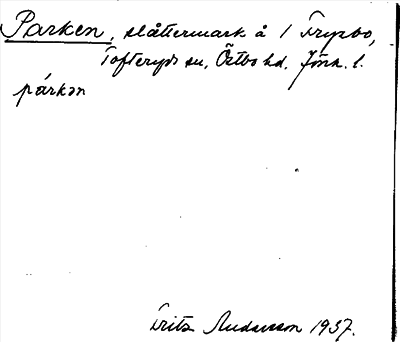 Parken, slåttermark å 1 Trypbo,
Tofteryds sn, Östbo hd. Jönk. l.
párkən
Fritz Andersson 1937.